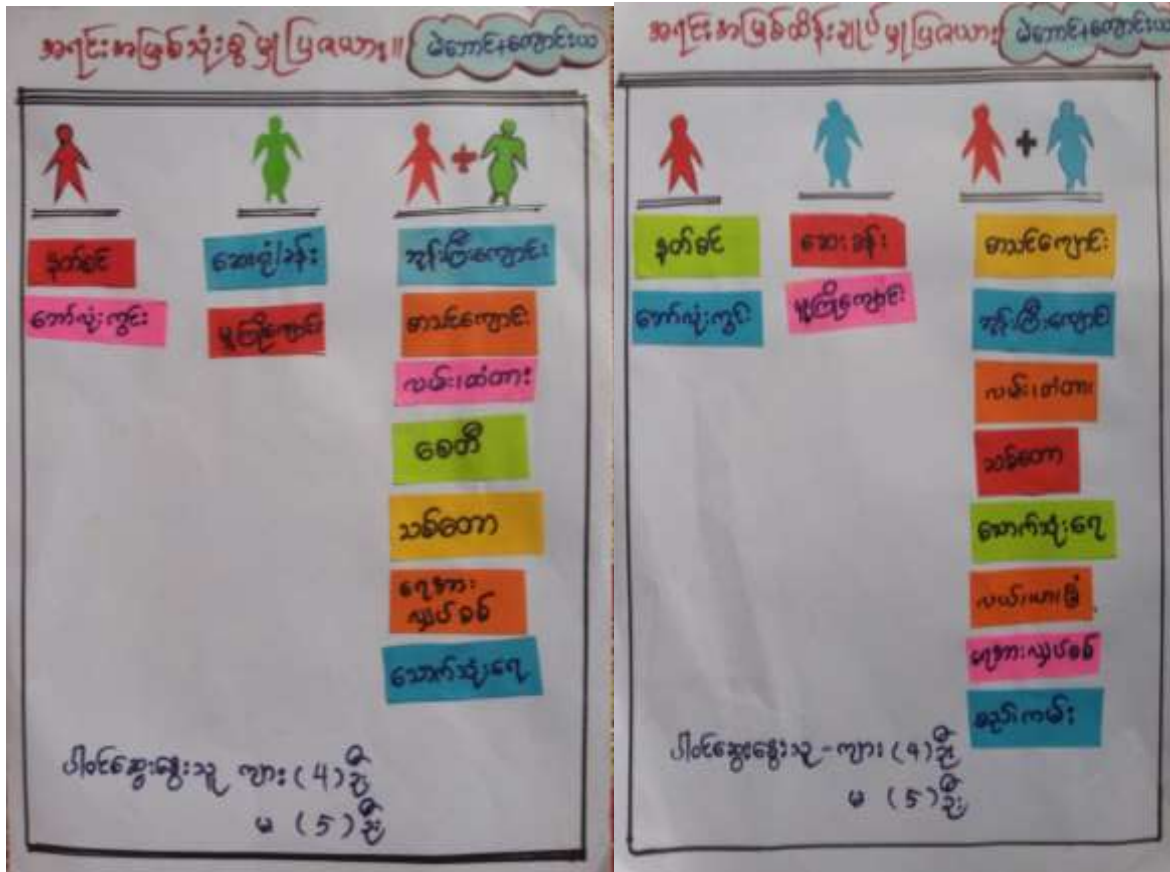 အရင်းအမြစ်သုံးစွဲမှုပြဇယား။
မဲဘောင်+ကျောင်းယ
နတ်စင်
ဘော်လုံးကွင်း
ဆေးရုံ/ခန်း
မူကြိုကျောင်း
ဘုန်းကြီးကျောင်း
စာသင်ကျောင်း
လမ်း၊တံတား
စေတီ
သစ်တော
ရေအား
လျှပ်စစ်
သောက်သုံးရေ
ပါဝင်ဆွေးနွေးသူ ကျား (4) ဦး
မ (5) ဦး
အရင်းအမြစ်ထိန်းချုပ်မှုပြဇယား
မဲဘောင်+ကျောင်းယ
နတ်စင်
ဘော်လုံးကွင်း
ဆေးခန်း
မူကြိုကျောင်း
စာသင်ကျောင်း
ဘုန်းကြီးကျောင်း
လမ်း၊တံတား
သစ်တော
သောက်သုံးရေ
လယ်၊ယာ၊ခြံ
ရေအားလျှပ်စစ်
ပါဝင်ဆွေးနွေးသူ - ကျား (4) ဦး
မ (5) ဦး